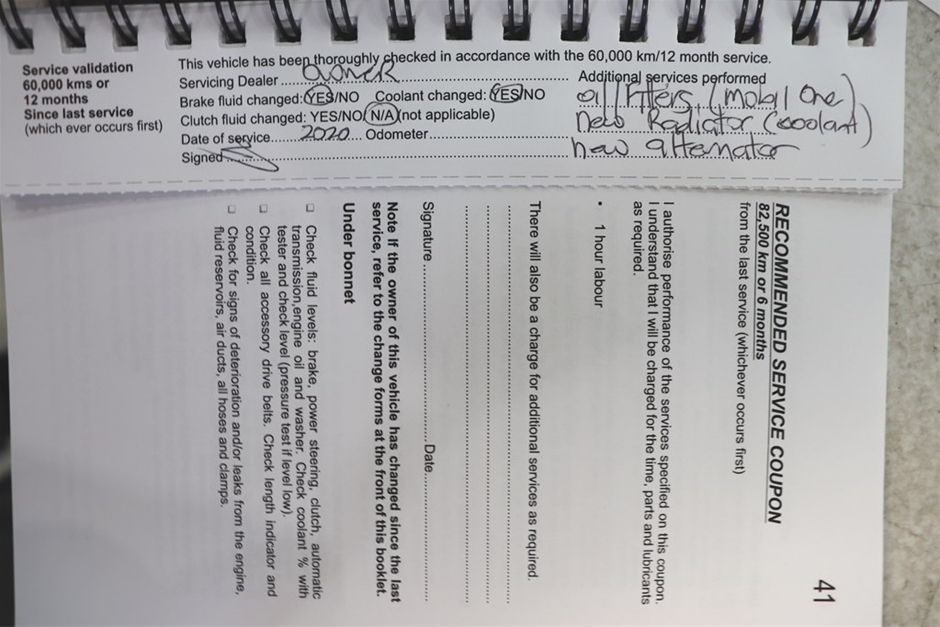 Service validation
60,000 kms or
12 months
Since last service
(which ever occurs first)
This vehicle has been thoroughly checked in accordance with the 60,000 km/12 month service.
Servicing Dealer.....owner.....
Brake fluid changed: YES/NO Coolant changed: YES/NO
Clutch fluid changed: YES/NO N/A (not applicable)
Date of service.....2020.... Odometer.....
Signed.....
Additional services performed
oil/filters (mobil one)
new Radiator (coolant)
new alternator
41
RECOMMENDED SERVICE COUPON
82,500 km or 6 months
from the last service (whichever occurs first)
I authorise performance of the services specified on this coupon.
I understand that I will be charged for the time, parts and lubricants
as required.
• 1 hour labour
There will also be a charge for additional services as required.
Signature ..... Date.....
Note If the owner of this vehicle has changed since the last
service, refer to the change forms at the front of this booklet.
Under bonnet
❑ Check fluid levels: brake, power steering, clutch, automatic
transmission,engine oil and washer. Check coolant % with
tester and check level (pressure test if level low).
❑ Check all accessory drive belts. Check length indicator and
condition.
❑ Check for signs of deterioration and/or leaks from the engine,
fluid reservoirs, air ducts, all hoses and clamps.